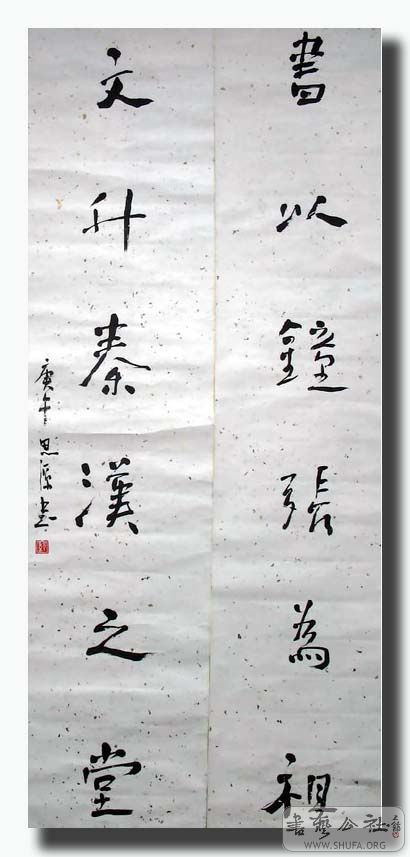 書以鐘張為祖
文升秦漢之堂
庚午思源書
書藝公社
WWW.SHUFA.ORG